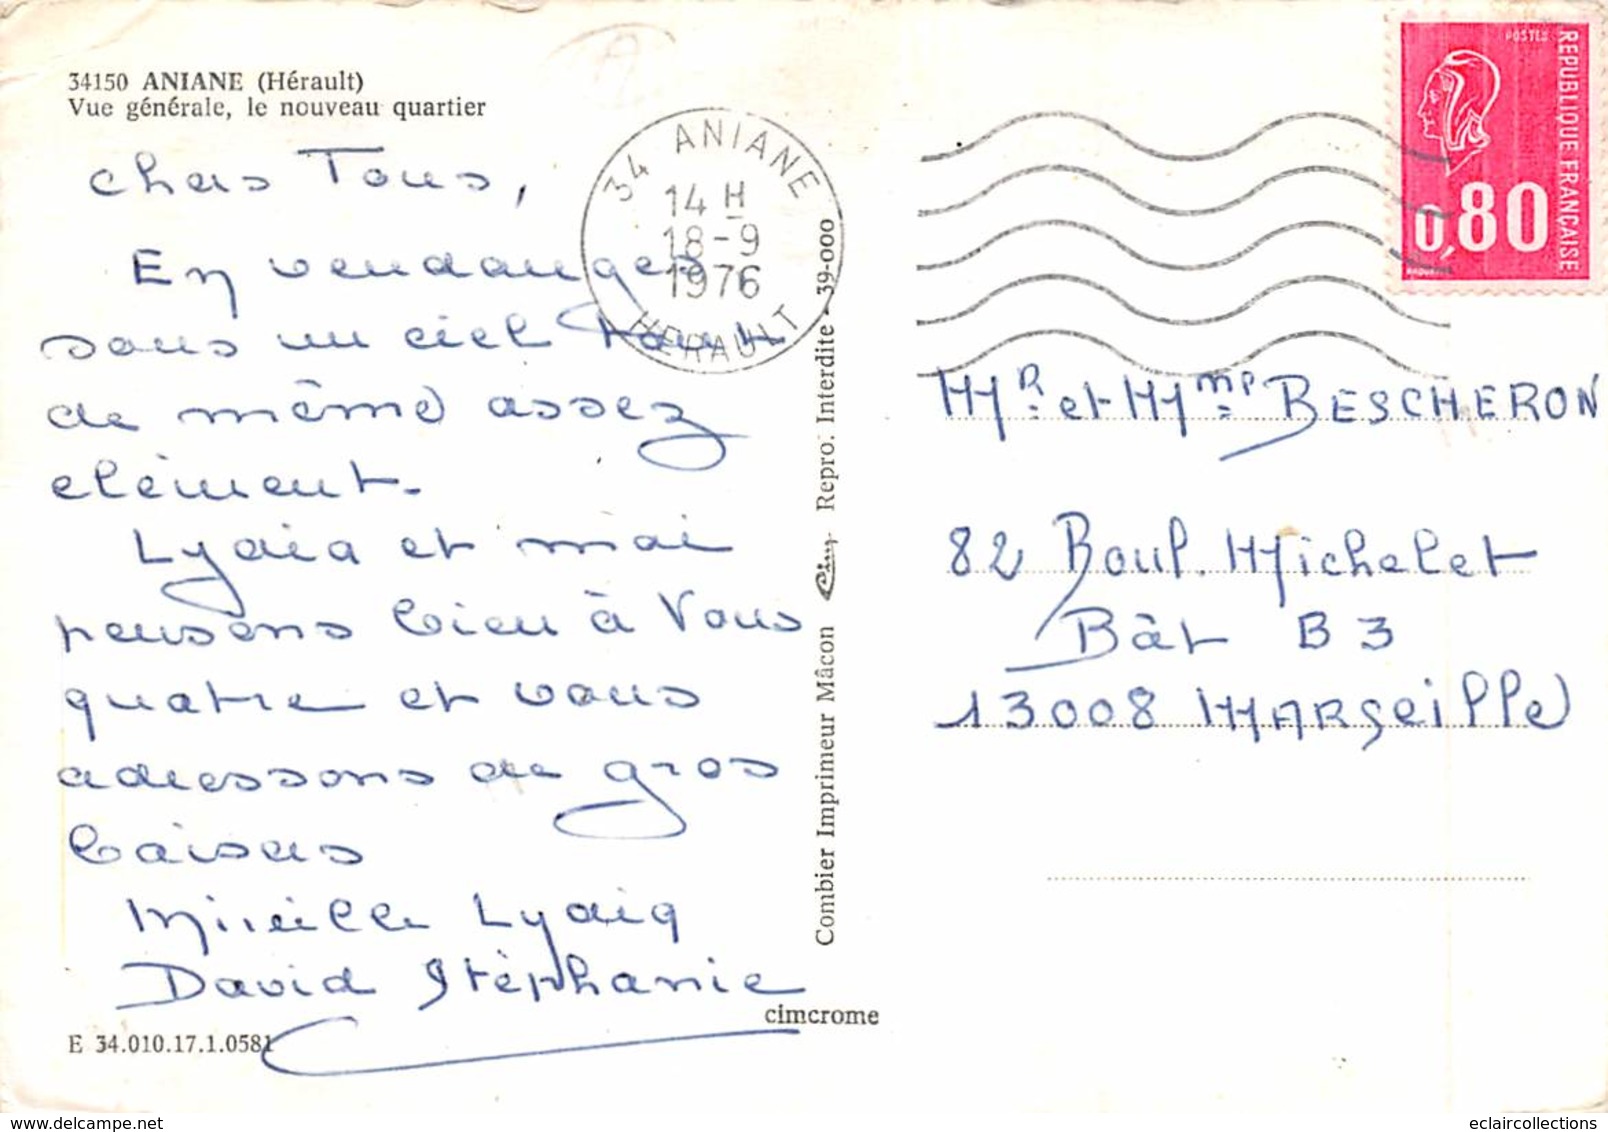 34150 ANIANE (Hérault)
Vue générale, le nouveau quartier
chers Tous,
En vendanges
sous un ciel tout
de même assez
clément.
Lydia et moi
pensons bien à Vous
quatre et vous
adressons de gros
baisers
Mireille Lydia
David Stéphanie
E 34.010.17.1.0581
cimcrome
Combier Imprimeur Mâcon Cim Repro. Interdite - 39-000
34 ANIANE
14 H
18-9
1976
HERAULT
POSTES
REPUBLIQUE FRANÇAISE
0,80
Mr et Mme BESCHERON
82 Boul. Michelet
Bât B3
13008 MARSEille
eclaircollections